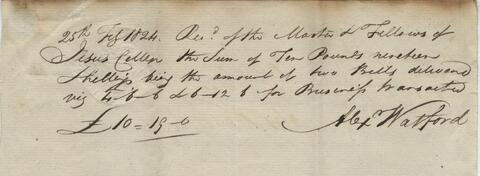 25th Feb 1824. Recd of the Master & Fellows of
Jesus College the Sum of Ten Pounds nineteen
Shillgs being the amount of two Bills delivered
viz 4-6-6 & 6-12-6 for Business transacted
£10=19-0
Alexr Watford